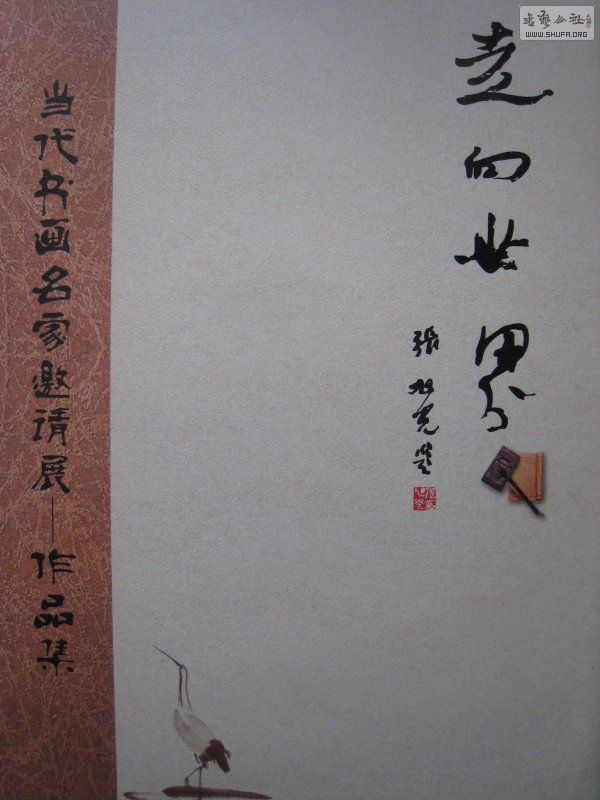 走向世界
張旭光題
当代书画名家邀请展——作品集
書藝公社
WWW.SHUFA.ORG